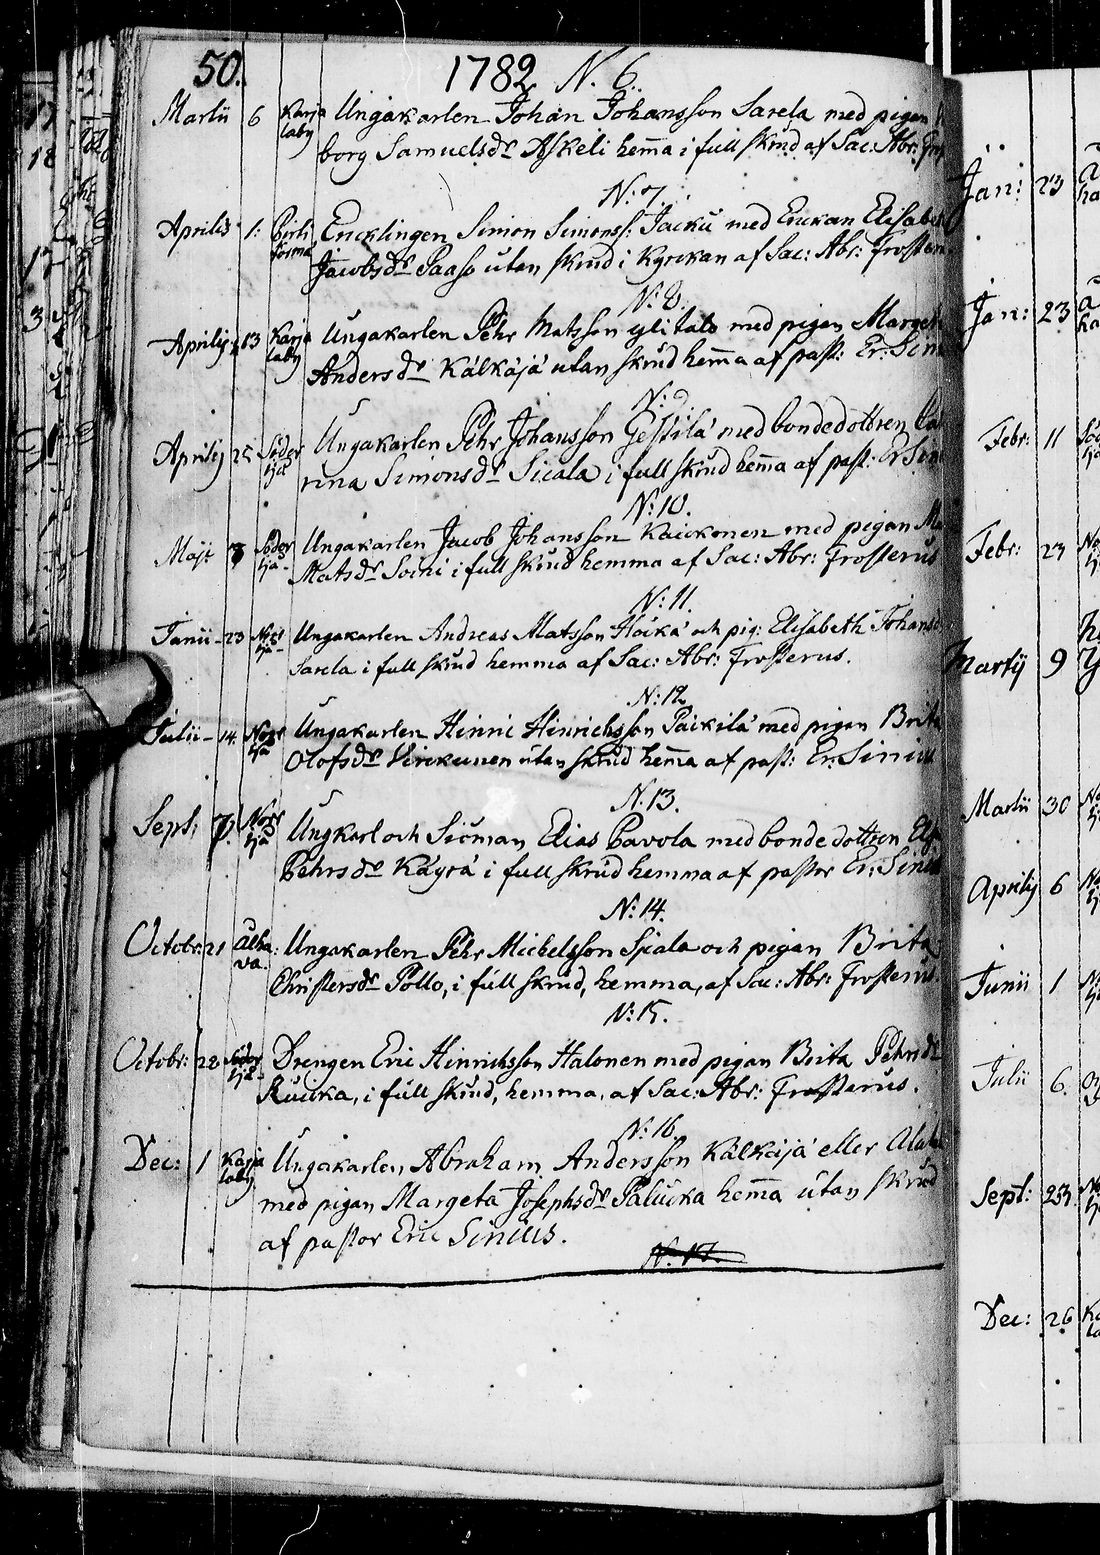 50. 1782 N. 6.
Martii 6 Karja laby Ungakarlen Johan Johansson Sarela med pigan
borg Samuelsdr Askeli hem̄a i full skrud af Sac: Abr:
N: 7.
Aprilis 1: Encklingen Simon Simonss: Jacku med Enckan Elisabe
Jacobsdr Paaso utan skrud i Kyrckan af Sac: Abr: Froster
N: 8.
Aprilis 13 Karja laby Ungakarlen Pehr Matsson ylitalo med pigan Marget
Andersdr Kälkäjä utan skrud hem̄a af past: Er: Sini
N: 9
Aprilij 25 Söder ljä Ungakarlen Pehr Johansson Gestilä med bondedottren Ca
rina Simonsdr Sicala i full skrud hem̄a af past: Er Sini
N: 10.
Maji 3 Söder ljä- Ungakarlen Jacob Johansson Kaickonen med pigan Ma
Matsdr Soini i full skrud hemma af Sac: Abr: Frosterus
N: 11.
Junii - 23 Norr ljä- Ungakarlen Andreas Matsson Höckä och pig: Elisabeth Johans
Sarela i full skrud hemma af Sac: Abr: Frosterus.
N: 12
Julii - 14. Norr ljä Ungakarlen Hinric Hinrichsson Päickilä med pigan Brita
Olofsdr Virckunen utan skrud hem̄a af past: Er: Sinius
N. 13.
Sept; Norr ljä Ungkarl och Sicman Elias Pavola med bondedottren
Pehrsdr Käyrä i full skrud hemma af pastor Er: Sinius
N: 14.
Octobr: 21 Alha va: Ungakarlen Pehr Michelsson Spiala och pigan Brita
Christersdr Pollo, i full skrud, hemma, af Sac: Abr: Frosterus.
N: 15.
Octobr: 28 Söder ljä- Drengen Eric Hinrichsson Halonen med pigan Brita Pehrsdr
Ruucka, i full skrud, hemma, af Sac: Abr: Frosterus.
N: 16
Dec: 1 Karja laby Ungakarlen Abraham Andersson Kälkäjä eller
med pigan Margeta Josephsdr Palucka hem̄a utan skrud
af pastor Eric Sinius.
N. 17.
Jan: 23
Jan: 23
Febr: 11
Febr: 23
Martij 9
Martii 30
Aprilij 6
Junii 1
Julii 6.
Sept: 23
Dec: 26